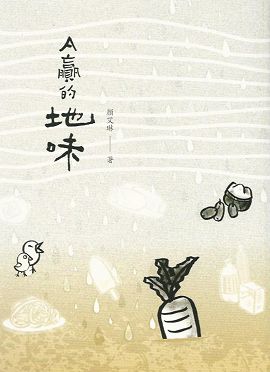 A贏的
地味
顏艾琳
著